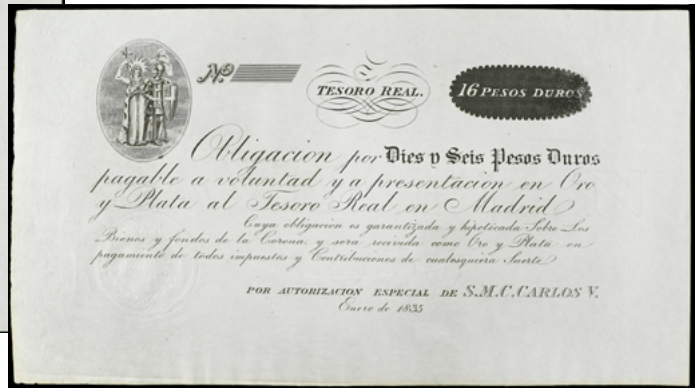 Nº
TESORO REAL.
16 PESOS DUROS
Obligacion por Dies y Seis Pesos Duros
pagable a voluntad y a presentacion en Oro
y Plata al Tesoro Real en Madrid
Cuya obligacion es garantizada y hipoticada Sobre Los
Bienos y fondos de la Corona, y sera recivida como Oro y Plata en
pagamiento de todos impuestos y Contribuciones de cualesquiera Suerte
POR AUTORIZACION ESPECIAL DE S.M.C. CARLOS V.
Enero de 1835